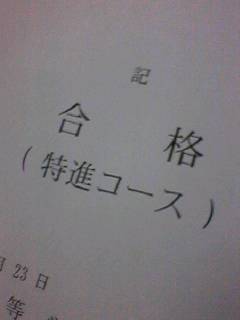 記
合格
(特進コース)
月23日
等